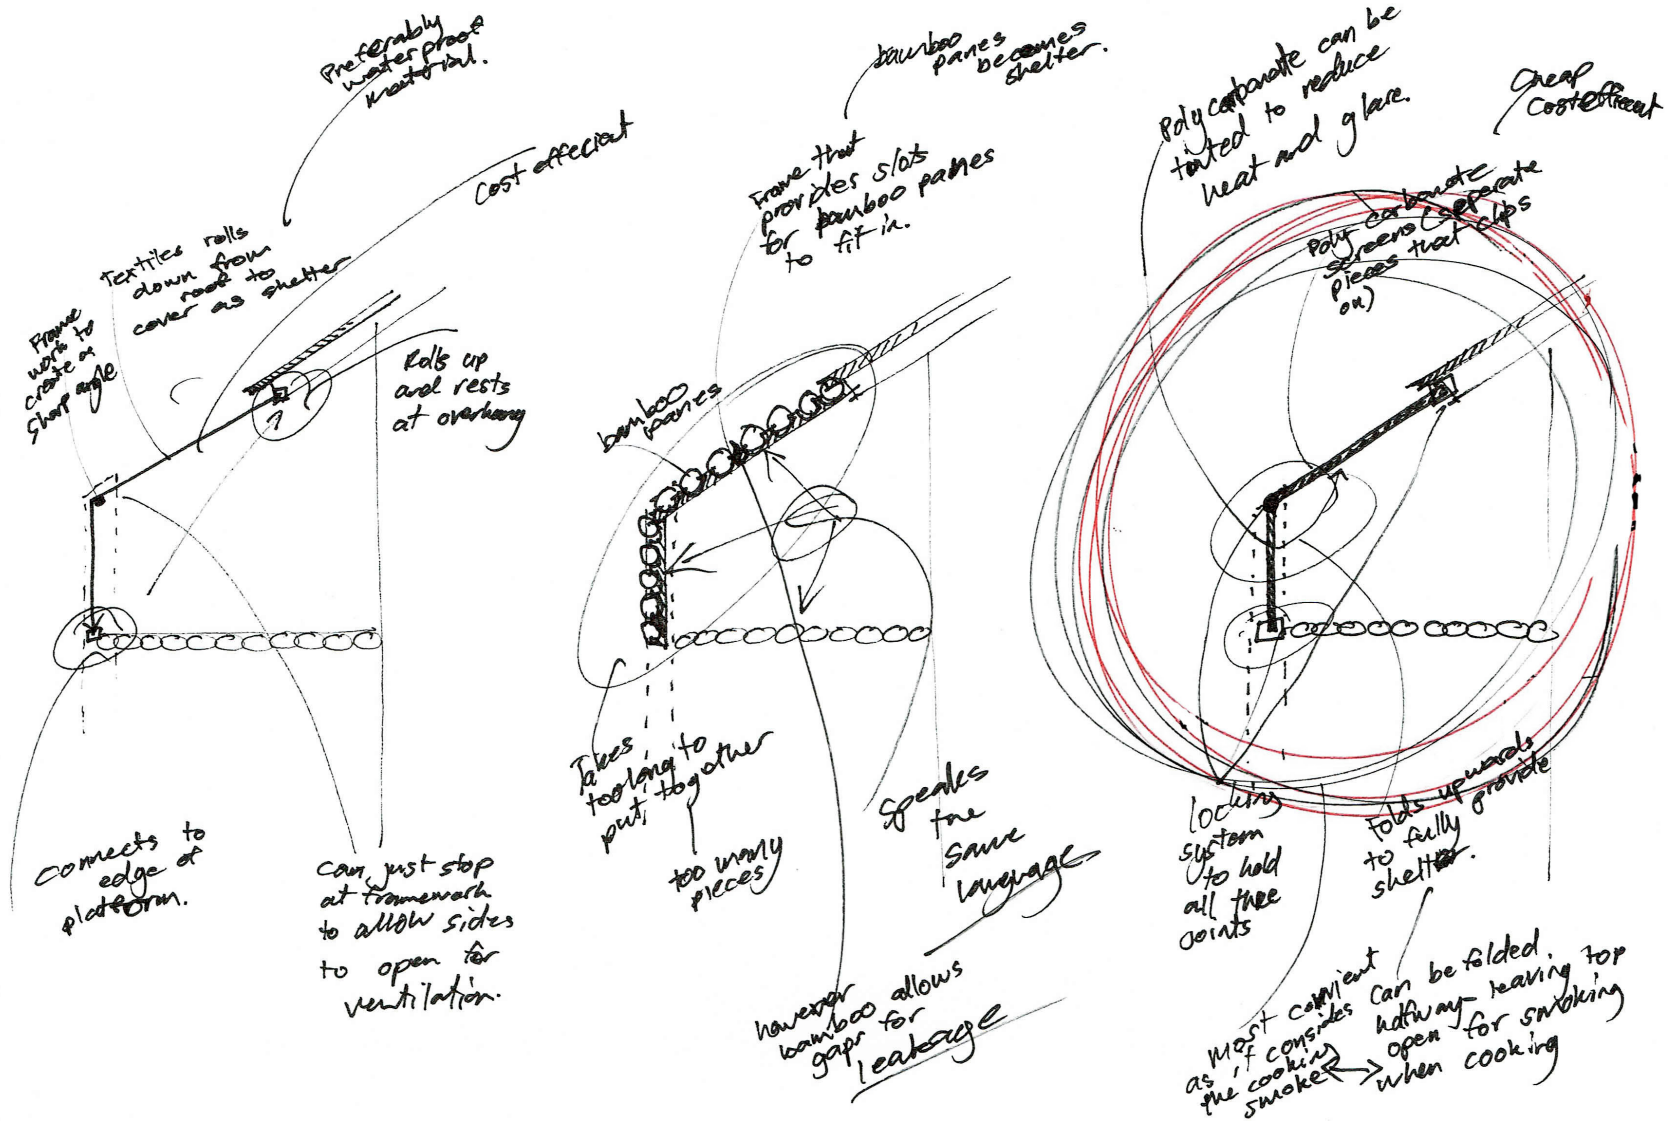 Preferably
waterproof
material.
Cost effecient
Textiles rolls
down from
roof to
cover as shelter
Frame
work to
create a
sharp angle
Rolls up
and rests
at overhang
Connects to
edge of
platform.
Can just stop
at framework
to allow sides
to open for
ventilation.
bamboo
panes
becomes
shelter.
Frame that
provides slots
for bamboo panes
to fit in.
bamboo
panes
Takes
too long to
put together
too many
pieces
Speaks
the
same
language
however
bamboo allows
gaps for
leakage
Polycarbonate can be
tinted to reduce
heat and glare.
Cheap
Cost efficient
Poly carbonate
screens (seperate
pieces that clips
on)
locking
system
to hold
all three
points
Folds upwards
to fully provide
shelter.
most convient
as it consides
the cooking
smoke
can be folded
halfway leaving top
open for smoking
when cooking